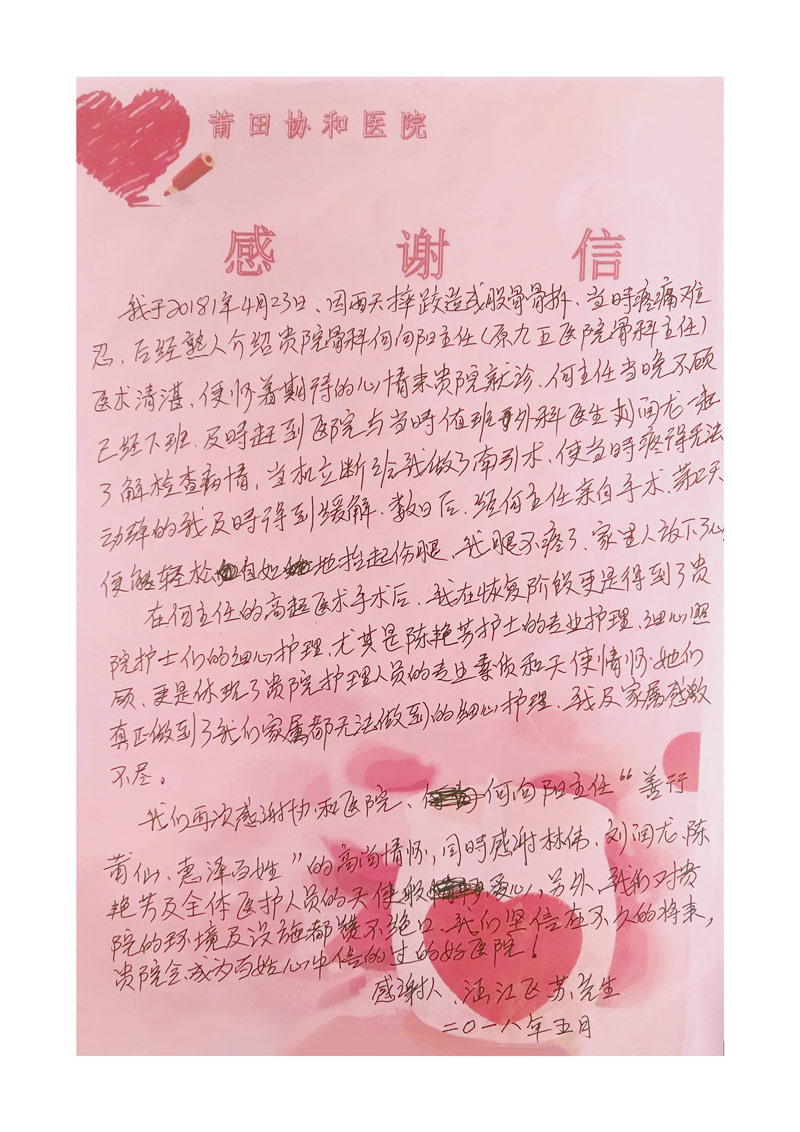 莆田协和医院
感谢信
我于20181年4月23日、因雨天摔跤造成股骨骨折、当时疼痛难
忍、后经熟人介绍贵院骨科何向阳主任（原九五医院骨科主任）
医术清湛、便怀着期待的心情来贵院就诊、何主任当晚不顾
已经下班、及时赶到医院与当时值班外科医生刘润龙一起
了解检查病情，当机立断给我做了牵引术、使当时疼得无法
动弹的我及时得到缓解、数日后、经何主任亲自手术、第二天
便能轻松自如地抬起伤腿、我腿不疼了、家里人放下了心、
在何主任的高超医术手术后、我在恢复阶段更是得到了贵
院护士们的细心护理、尤其是陈艳芳护士的专业护理、细心照
顾、更是体现了贵院护理人员的专业素质和天使情怀、她们
真正做到了我们家属都无法做到的细心护理、我及家属感激
不尽。
我们再次感谢协和医院、何向阳主任“善行
莆仙、惠泽百姓”的高尚情怀，同时感谢林伟、刘润龙、陈
艳芳及全体医护人员的天使般爱心，另外、我们对贵
院的环境及设施都赞不绝口、我们坚信在不久的将来，
贵院会成为百姓心中信的过的好医院！
感谢人、涵江区苏先生
二〇一八年五月